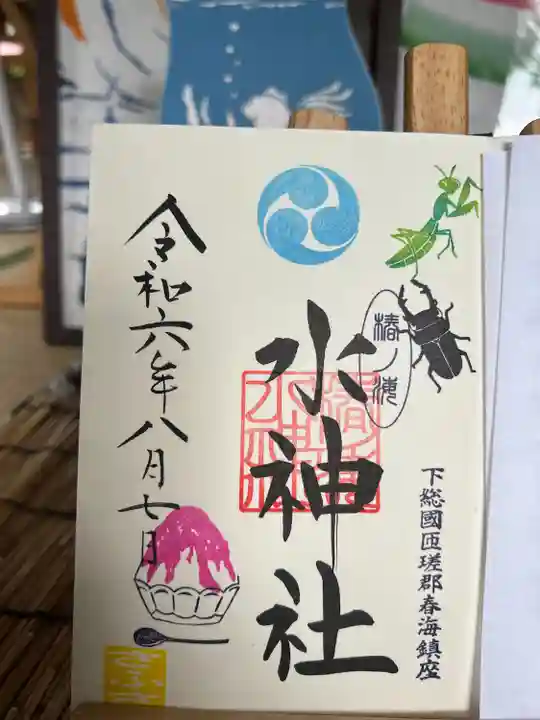 椿ノ海
下総國匝瑳郡春海鎮座
水神社
令和六年八月七日